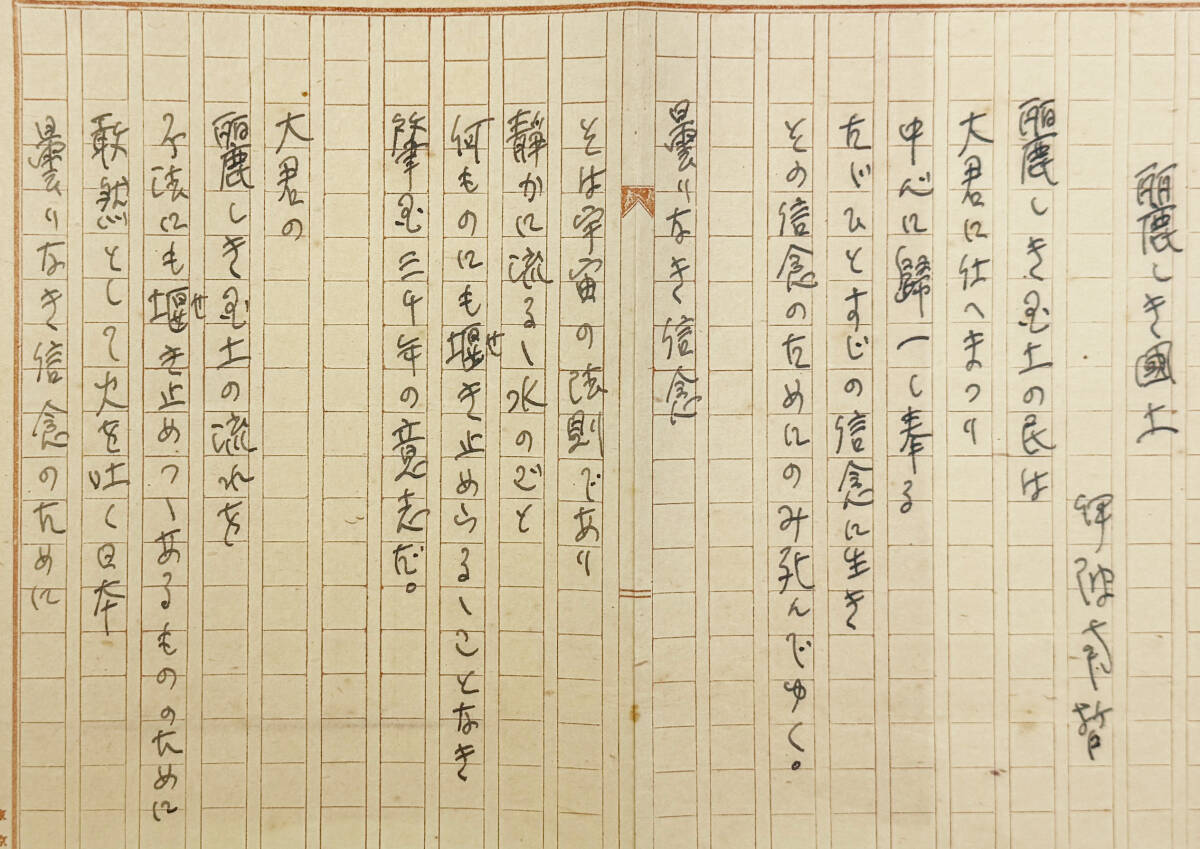 麗しき國土
伊波南哲
麗しき国土の民は
大君に仕へまつり
中心に歸一し奉る
たゞひとすじの信念に生き
その信念のためにのみ死んでゆく。
曇りなき信念
そは宇宙の法則であり
靜かに流るゝ水のごと
何ものにも堰せき止めらるゝことなき
肇国三千年の意志だ。
大君の
麗しき国土の流れを
不法にも堰せき止めつゝあるもののために
敢然として火を吐く日本
曇りなき信念のために